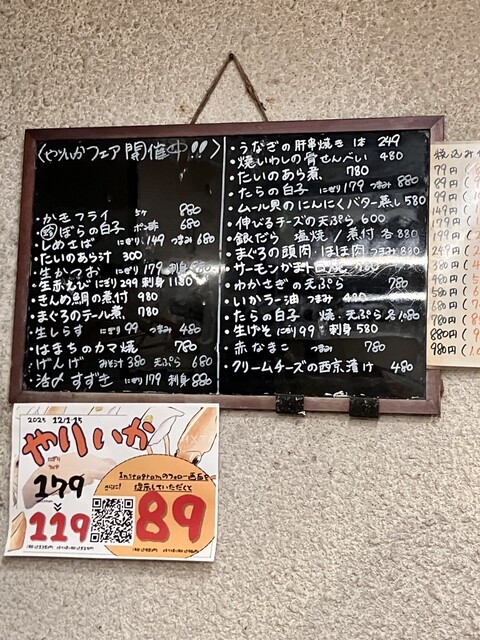 〈やりいかフェア開催中!!〉
・かきフライ 5ヶ 880
・珍ぼらの白子 ポン酢 680
・しめさば にぎり149 つまみ 680
・たいのあら汁 300
・生かつお にぎり179 刺身
・生赤えび にぎり299 刺身 1180
・きんめ鯛の煮付 980
・まぐろのテール煮 780
・生しらす にぎり99 つまみ 480
・はまちのカマ焼 780
・げんげ みそ汁380 天ぷら 680
・活〆すずき にぎり179 刺身 880
・うなぎの肝串焼き 1本 249
・焼いわしの骨せんべい 480
・たいのあら煮 780
・たらの白子 にぎり179 つまみ 880
・ムール貝のにんにくバター蒸し 580
・伸びるチーズの天ぷら 600
・銀だら 塩焼/煮付 各880
・まぐろの頭肉・ほほ肉 つまみ 880
・サーモンかま 780
・わかさぎの天ぷら 780
・いかラー油 つまみ 480
・たらの白子 焼・天ぷら 各1080
・生げそ にぎり99 刺身 580
・赤なまこ 780
・クリームチーズの西京漬け 480
税込み
79円
89円
99円
149円
2025 12/1-15
やりいか
にぎり
フェア
179
119
さらに!
Instagramのフォロー画面を
提示していただくと
89